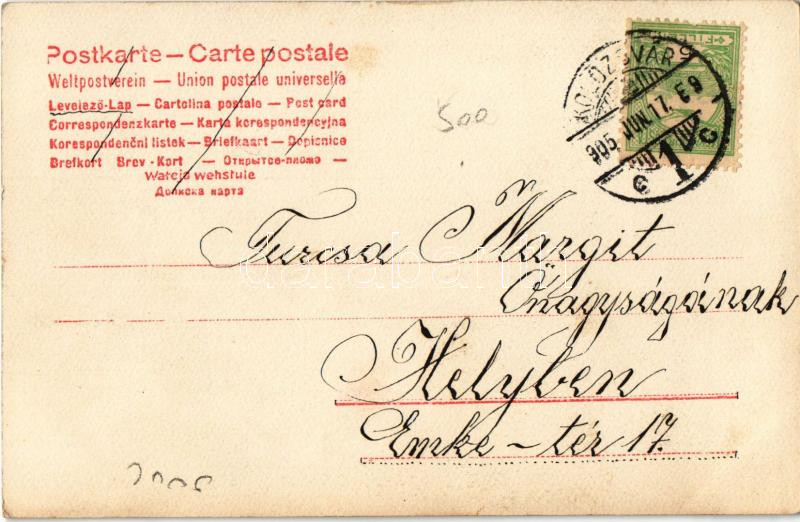 Postkarte — Carte postale
Weltpostverein — Union postale universelle
Levelező-Lap — Cartolina postale — Post card
Correspondenzkarte — Karta korespondencyjna
Korespondenční listek — Briefkaart — Dopisnice
Brefkort Brev-Kort — Открытое-письмо —
Wałcja wehstule
Дописка карта
500
KOLOZSVÁR
905 JUN. 17. É 9
1
C C
Turcsa Margit
Őnagyságának
Helyben
Emke-tér 17.
darabanth